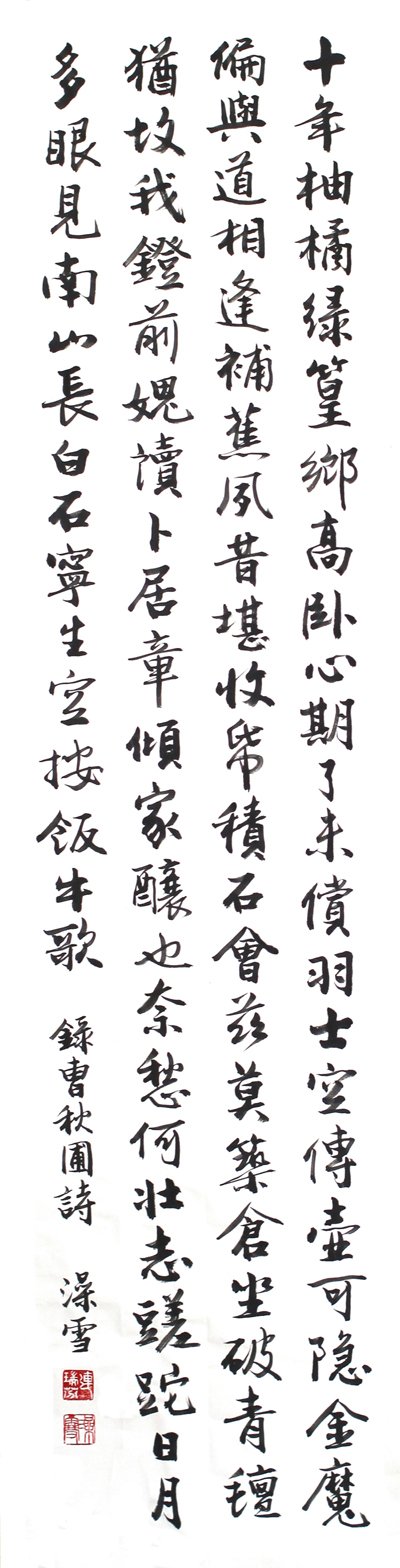 十年柚橘绿篁鄉高卧心期了未償羽士空傳壷可隐金魔
偏與道相逢補蕉夙昔堪收帋積石會茲莫築倉坐破青氊
猶故我鐙前媿讀卜居章傾家釀也奈愁何壮志蹉跎日月
多眼見南山長白石寧生空按飯牛歌
錄曹秋圃詩
澡雪